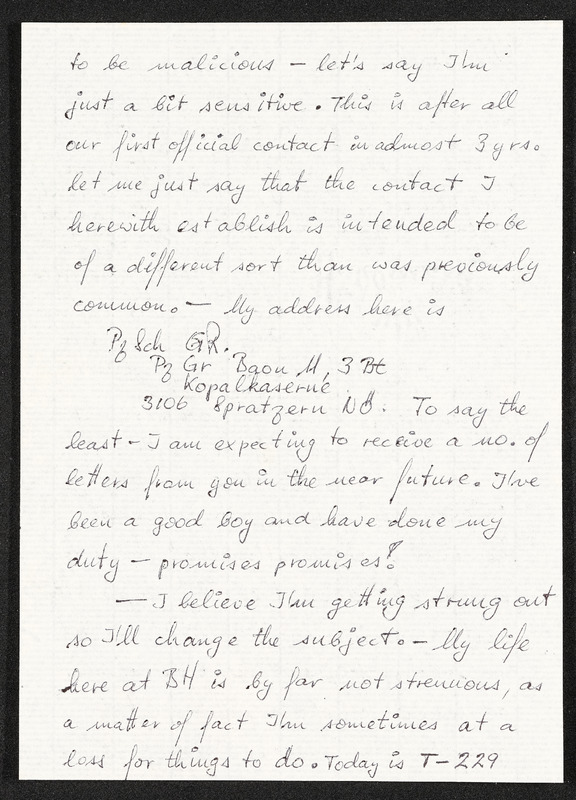 to be malicious – let's say I'm
just a bit sensitive. This is after all
our first official contact in admost 3 yrs.
let me just say that the contact I
herewith establish is intended to be
of a different sort than was previously
common. – My address here is
Pz Sch GR.
Pz Gr Baon 11, 3 Bt
Kopalkaserne
3106 Spratzern NÖ. To say the
least – I am expecting to receive a no. of
letters from you in the near future. I've
been a good boy and have done my
duty – promises promises!
— I believe I'm getting strung out
so I'll change the subject. – My life
here at BH is by far not strenuous, as
a matter of fact I'm sometimes at a
loss for things to do. Today is T-229